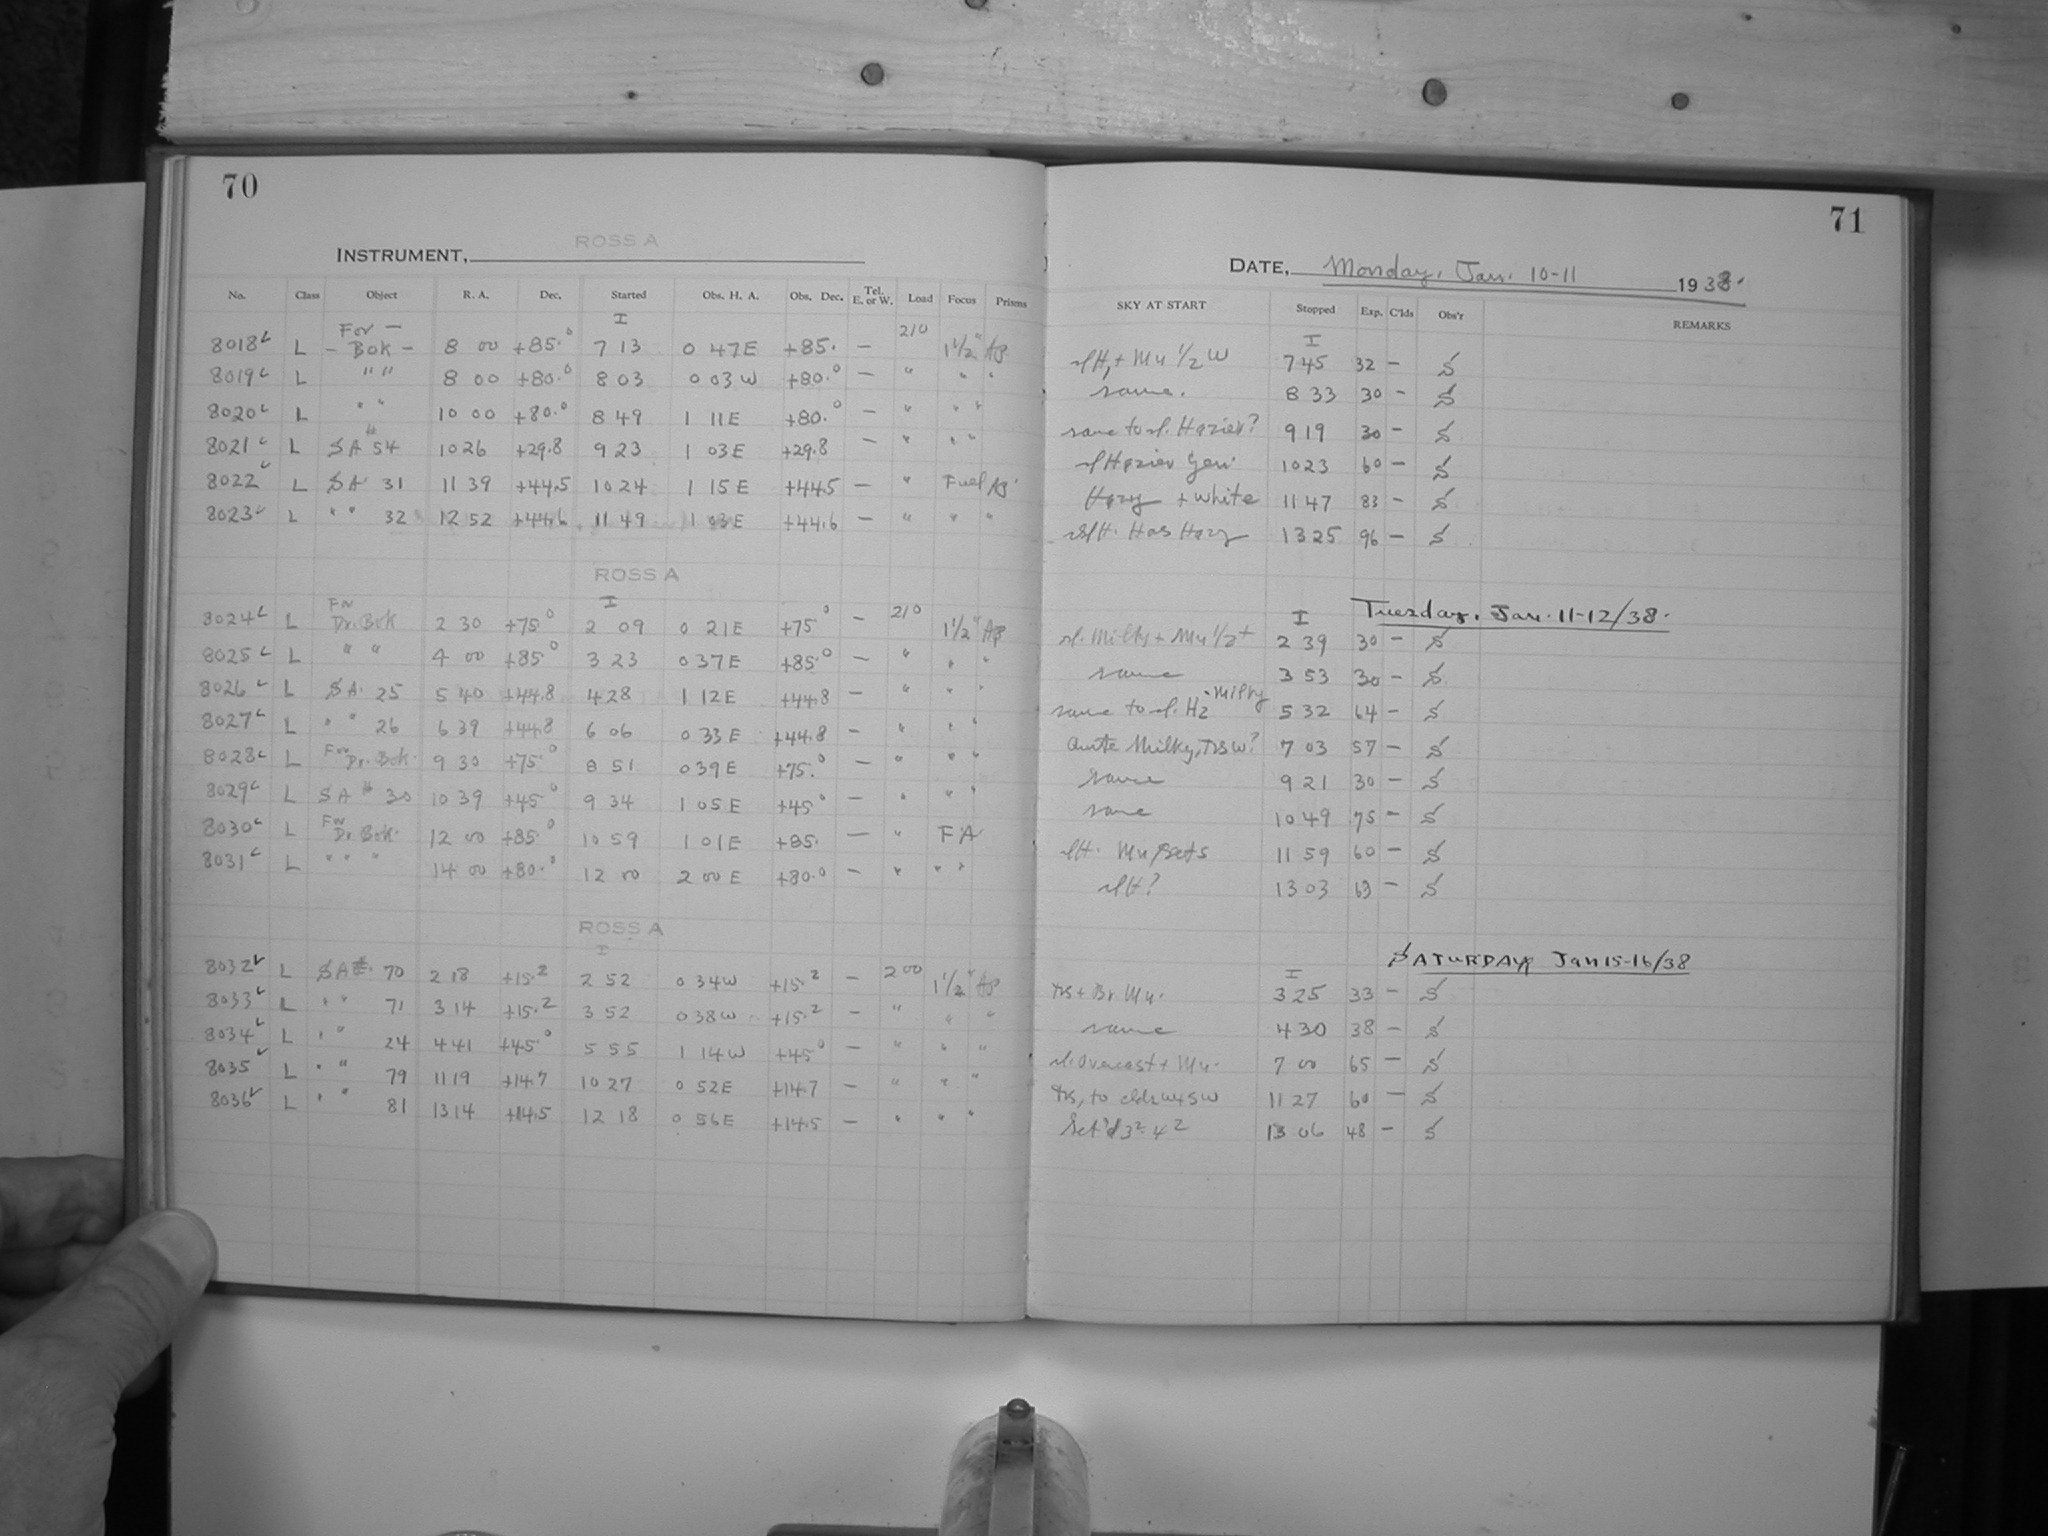 70
INSTRUMENT, ROSS A
No. Class Object R. A. Dec. Started Obs. H. A. Obs. Dec. Tel. E. or W. Load Focus Prisms
I
8018 L For - Bok - 8 00 +85.° 7 13 0 47E +85. — 210 1½" Ap
8019 L " " 8 00 +80.° 8 03 0 03W +80.° — " " "
8020 L " " 10 00 +80.° 8 49 1 11E +80.° — " " "
8021 L SA 54 10 26 +29.8 9 23 1 03E +29.8 — " " "
8022 L SA 31 11 39 +44.5 10 24 1 15E +44.5 — " Full Ap
8023 L " " 32 12 52 +44.6 11 49 1 03E +44.6 — " " "
ROSS A
I
8024 L For Dr. Bok 2 30 +75° 2 09 0 21E +75° — 210 1½" Ap
8025 L " " 4 00 +85.° 3 23 0 37E +85.° — " " "
8026 L SA 25 5 40 +44.8 4 28 1 12E +44.8 — " " "
8027 L " " 26 6 39 +44.8 6 06 0 33E +44.8 — " " "
8028 L For Dr. Bok 9 30 +75.° 8 51 0 39E +75.° — " " "
8029 L SA 30 10 39 +45° 9 34 1 05E +45° — " " "
8030 L For Dr. Bok 12 00 +85.° 10 59 1 01E +85. — " F A
8031 L " " " 14 00 +80.° 12 00 2 00E +80.0 — " " "
ROSS A
I
8032 L SA 70 2 18 +15.2 2 52 0 34W +15.2 — 200 1½" Ap
8033 L " " 71 3 14 +15.2 3 52 0 38W +15.2 — " " "
8034 L " " 24 4 41 +45° 5 55 1 14W +45° — " " "
8035 L " " 79 11 19 +14.7 10 27 0 52E +14.7 — " " "
8036 L " " 81 13 14 +14.5 12 18 0 56E +14.5 — " " "
71
DATE, Monday, Jan. 10-11 1938.
SKY AT START Stopped Exp. C'lds Obs'r REMARKS
I
+ Mn ½ W 7 45 32 — S
same. 8 33 30 — S
same to sl. Hazier? 9 19 30 — S
sl Hazier Gen. 10 23 60 — S
Hazy + white 11 47 83 — S
Hazy 13 25 96 — S
Tuesday, Jan. 11-12/38.
I
sl. Milky + Mn ½+ 2 39 30 — S
same 3 53 30 — S
same to sl. Hz Milky 5 32 64 — S
Quite Milky, 7 03 57 — S
same 9 21 30 — S
same 10 49 75 — S
Mn sets 11 59 60 — S
sl H? 13 03 63 — S
SATURDAY Jan 15-16/38
I
+ Br Mn. 3 25 33 — S
same 4 30 38 — S
sl. Overcast + Mn. 7 00 65 — S
to 11 27 60 — S
13 06 48 — S